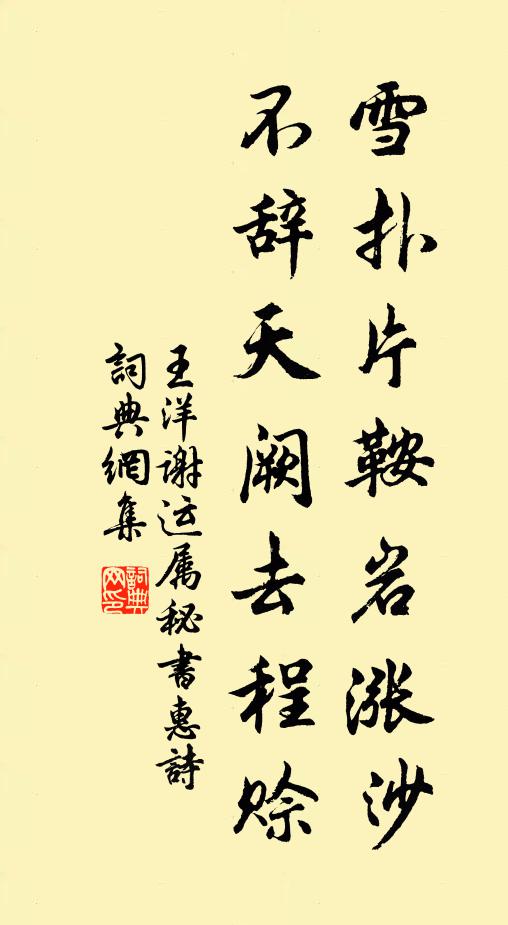 雪扑片鞍岩涨沙
不辞天阙去程赊
王洋谢运属秘书惠詩
詞典網集
詞典網印